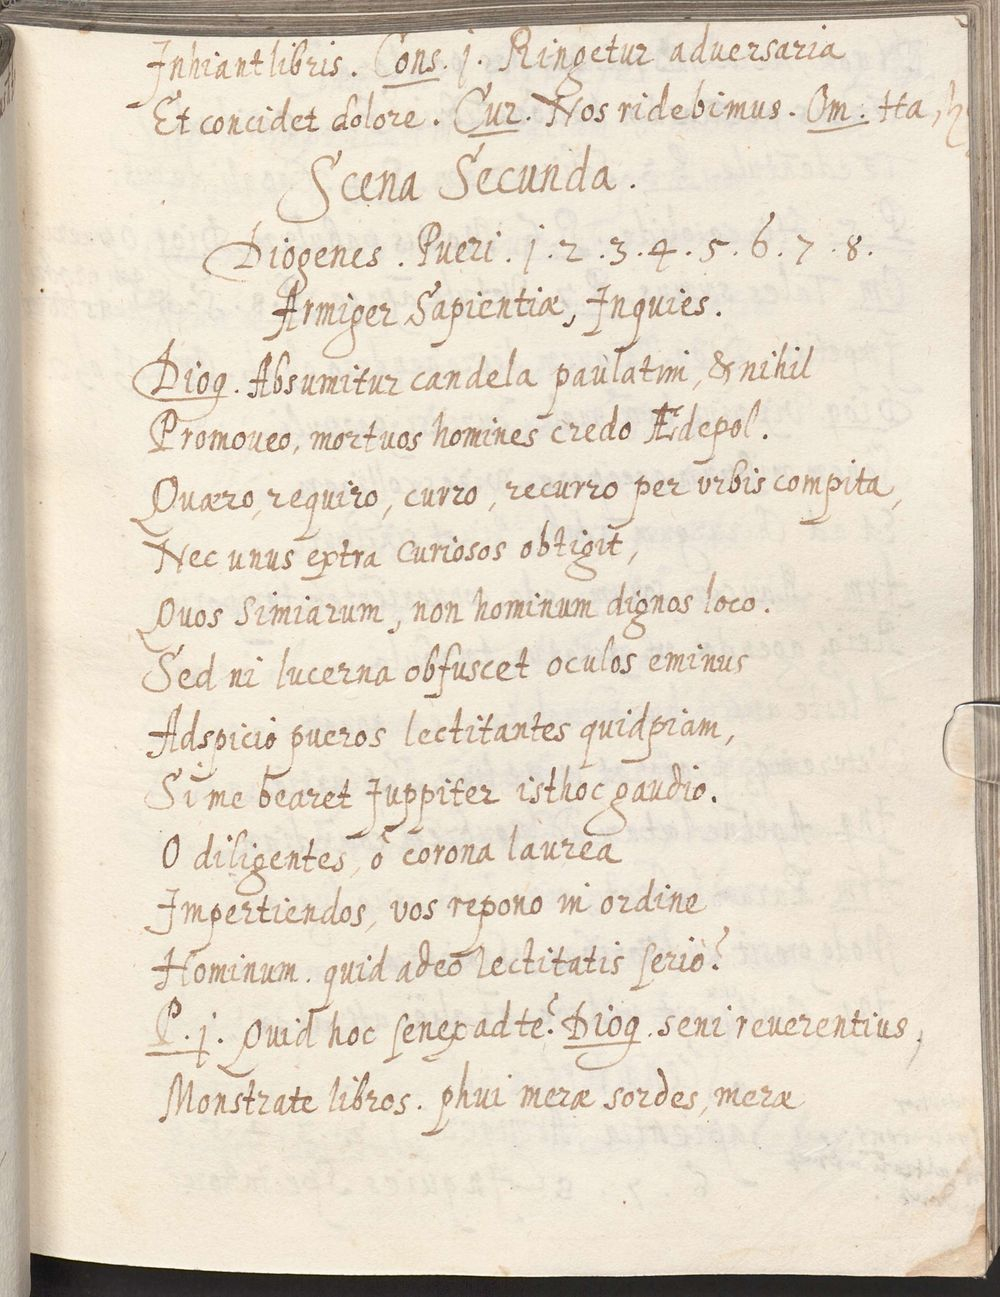 Inhiant libris. Cons. j. Ringetur adversaria
Et concidet dolore. Cur. Nos ridebimus. Om. Ha, h
Scena Secunda.
Diogenes. Pueri. j. 2. 3. 4. 5. 6. 7. 8.
Armiger Sapientiæ, Inquies.
Diog. Absumitur candela paulatim, & nihil
Promoveo, mortuos homines credo Ædepol.
Quæro, requiro, curro, recurro per vrbis compita,
Nec unus extra curiosos obtigit,
Quos Simiarum, non hominum dignos loco.
Sed ni lucerna obfuscet oculos eminus
Adspicio pueros lectitantes quidpiam,
Si me bearet Juppiter isthoc gaudio.
O diligentes, ô corona laurea
Impertiendos, vos repono in ordine
Hominum. quid adeò lectitatis seriò?
P. j. Quid hoc senex ad te? Diog. seni reverentius,
Monstrate libros. phui meræ sordes, meræ